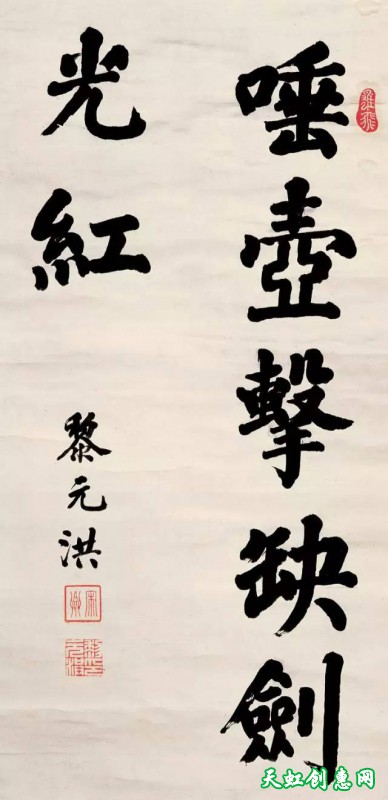 唾壺擊缺劍
光紅
黎元洪
天虹创惠网